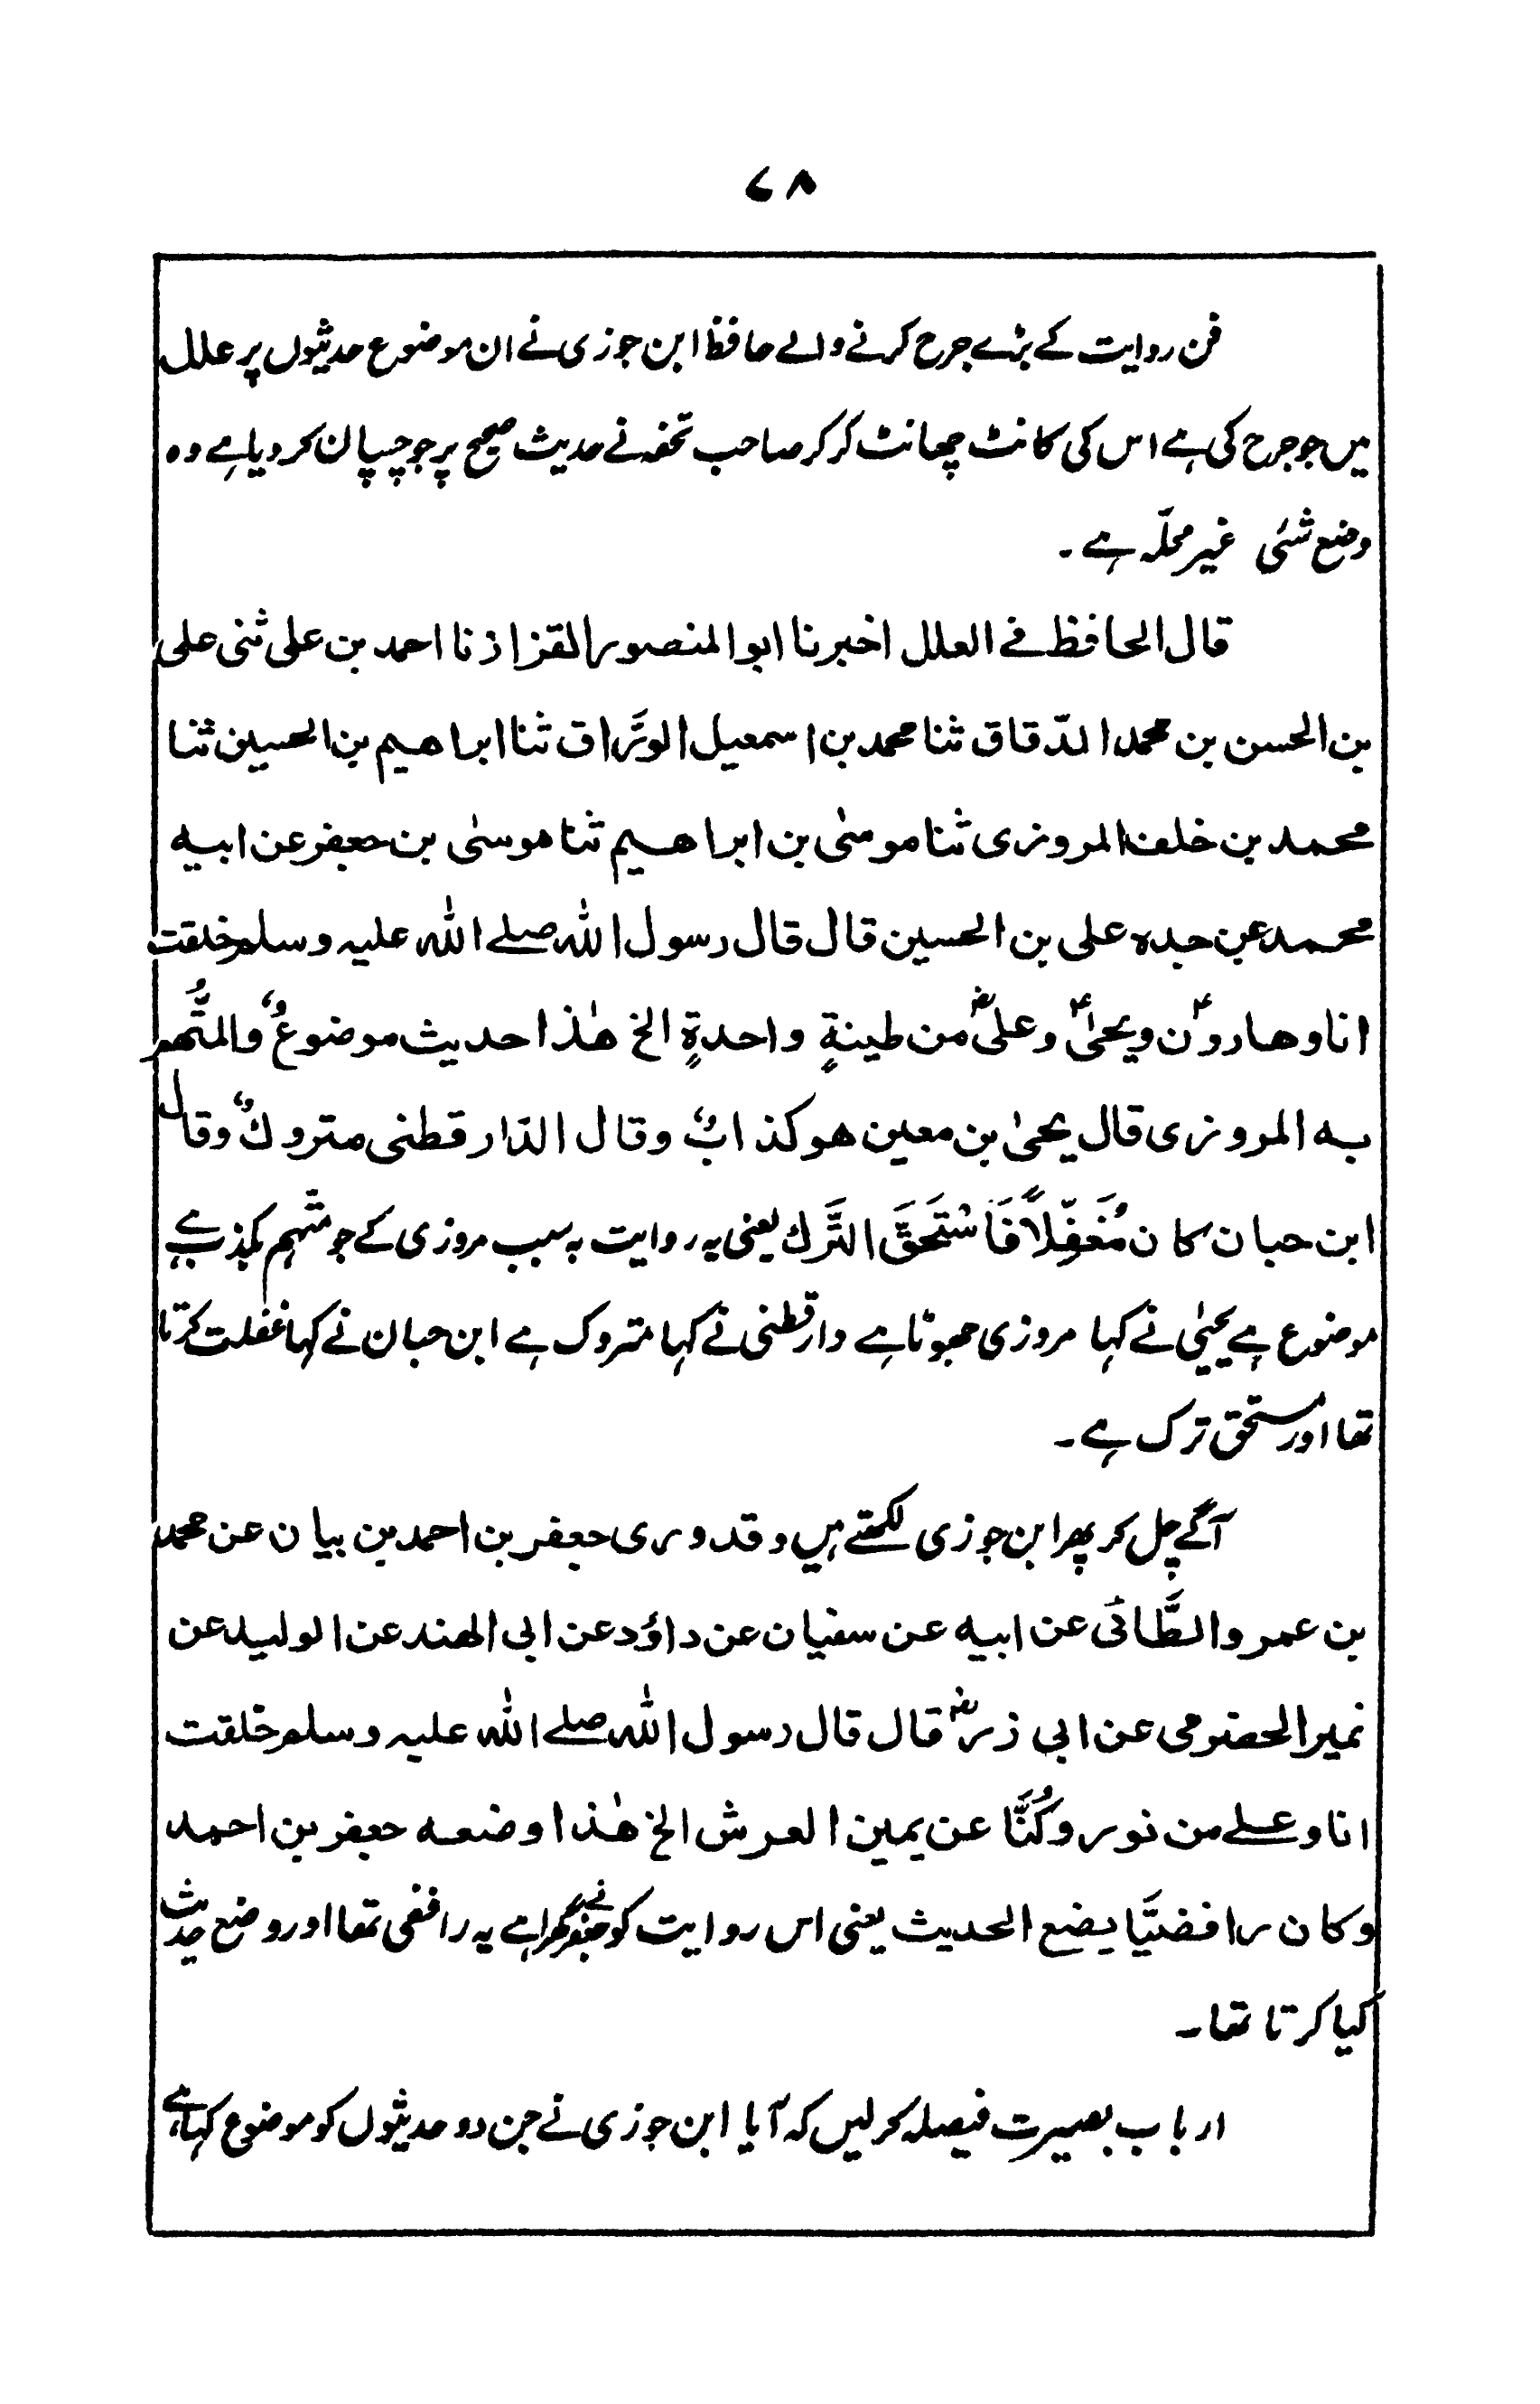 ۷۸
فن روایت کے بڑے جرح کرنے والے حافظ ابن جوزی نے ان موضوع حدیثوں پر علل
میں جو جرح کی ہے اس کی کانٹ چھانٹ کر کر صاحب تحفہ نے حدیث صحیح پر جو چسپان کردیا ہے وہ
وضع شئی غیر محلّہ ہے ۔
قال الحافظ فے العلل اخبرنا ابوالمنصور القزاز نا احمد بن علی ثنی علی
بن الحسن بن محمد الدّقاق ثنا محمد بن اسمعیل الورَّاق ثنا ابراهیم بن الحسین ثنا
محمد بن خلف المروزی ثنا موسٰی بن ابراهیم ثنا موسٰی بن جعفر عن ابیه
محمد عن جده علی بن الحسین قال قال رسول اللّٰہ صلے اللّٰہ علیہ وسلم خلقت
انا وهارونؑ ویحیٰؑ وعلیؓ من طینةٍ واحدةٍ الخ هٰذا حدیث موضوعٌ والمتَّهم
به المروزی قال یحیٰ بن معین هو کذابٌ وقال الدّارقطنی متروكٌ وقال
ابن حبان کان مُغَفِّلاً فَاسْتَحَقَّ التَّرك یعنی یہ روایت بہ سبب مروزی کے جو متّہم بکذب ہے
موضوع ہے یحییٰ نے کہا مروزی جھوٹا ہے دارقطنی نے کہا متروک ہے ابن حبان نے کہا غفلت کرتا
تھا اور مستحق ترک ہے ۔
آگے چل کر پھر ابن جوزی لکھتے ہیں وقد وری جعفر بن احمد بن بیان عن محمد
بن عمر والطَّائی عن ابیه عن سفیان عن داؤد عن ابی الهند عن الولید عن
نمیر الحضرمی عن ابی ذرؓ قال قال رسول اللّٰہ صلے اللّٰہ علیہ وسلم خلقت
انا وعلے من نور وكُنَّا عن یمین العرش الخ هٰذا وضعه جعفر بن احمد
وکان رافضیًّا یضع الحدیث یعنی اس روایت کو جعفر نے گھڑا ہے یہ رافضی تھا اور وضع حدیث
کیا کرتا تھا ۔
ارباب بصیرت فیصلہ کرلیں کہ آیا ابن جوزی نے جن دو حدیثوں کو موضوع کہا ہے،